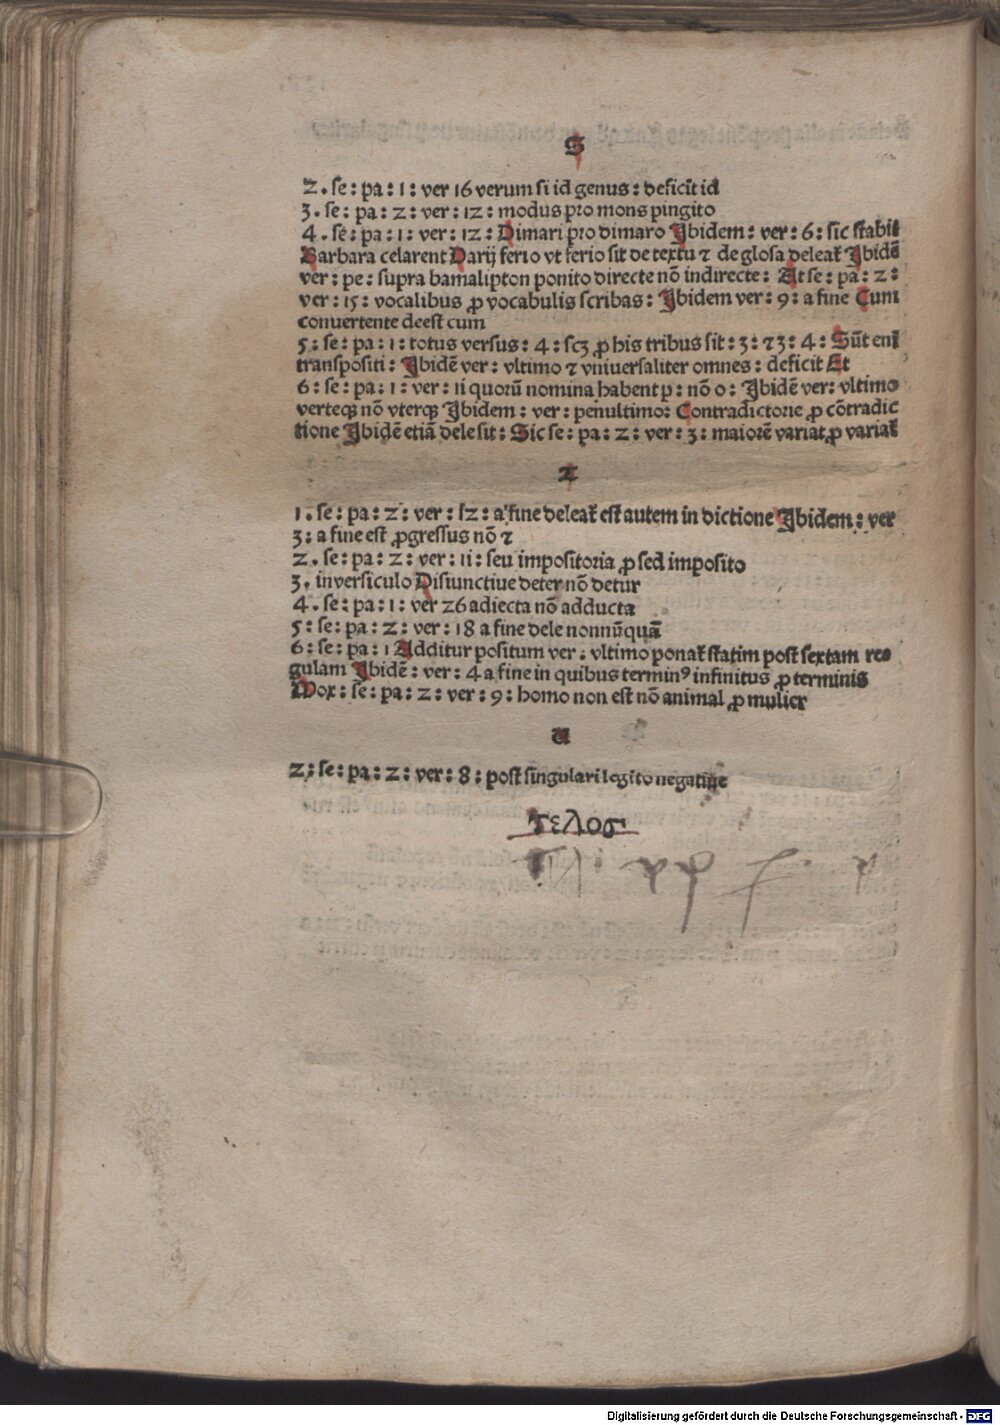 S
2. se: pa: 1: ver 16 verum si id genus: deficit id
3. se: pa: 2: ver: 12: modus pro mons pingito
4. se: pa: 1: ver: 12: Dimari pro dimaro Ibidem: ver: 6: sic stabit
Barbara celarent Darij ferio vt ferio sit de textu ⁊ de glosa deleat̃ Ibidẽ
ver: pe: supra bamalipton ponito directe nõ indirecte: At se: pa: 2:
ver: 15: vocalibus ꝓ vocabulis scribas: Ibidem ver: 9: a fine Cum
conuertente deest cum
5: se: pa: 1: totus versus: 4: scꝫ ꝓ his tribus sit: 3: ⁊ 3: 4: Sũt eni̅
transpositi: Ibidẽ ver: vltimo ⁊ vniuersaliter omnes: deficit Et
6: se: pa: 1: ver: 11 quorũ nomina habent p: nõ o: Ibidẽ ver: vltimo
verteqꝫ nõ vterqꝫ Ibidem: ver: penultimo: Contradictorie ꝓ cõtradic
tione Ibidẽ etiã dele sit: Sic se: pa: 2: ver: 3: maiorẽ variat ꝓ variat̃
T
1. se: pa: 2: ver: 12: a fine deleat̃ est autem in dictione Ibidem: ver
3: a fine est ꝓgressus nõ ⁊
2. se: pa: 2: ver: 11: seu impositoria ꝓ sed imposito
3. in versiculo Disiunctiue deter nõ detur
4. se: pa: 1: ver 26 adiecta nõ adducta
5: se: pa: 2: ver: 18 a fine dele nonnũquã
6: se: pa: 1 Additur positum ver: vltimo ponat̃ statim post sextam re⸗
gulam Ibidẽ: ver: 4 a fine in quibus terminꝰ infinitus ꝓ terminis
Mox: se: pa: 2: ver: 9: homo non est nõ animal ꝓ mulier
U
2: se: pa: 2: ver: 8: post singulari legito negatiue
τελος
Digitalisierung gefördert durch die Deutsche Forschungsgemeinschaft - DFG